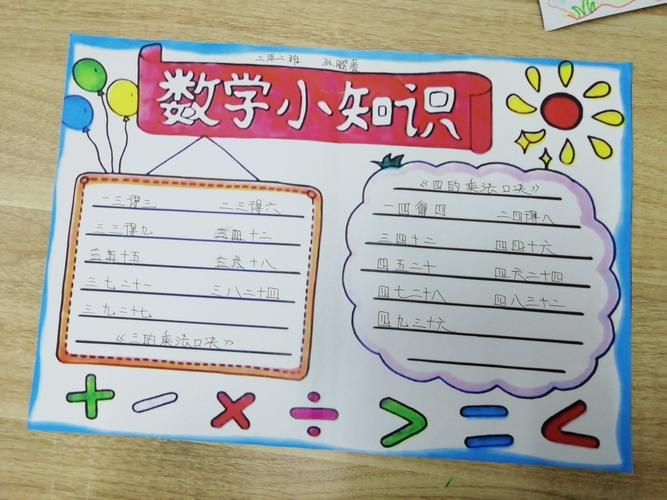 二年二班
数学小知识
一三得三 二三得六
三三得九 三四十二
三五十五 三六十八
三七二十一 三八二十四
三九二十七
《三的乘法口决》
《四的乘法口决》
一四得四 二四得八
三四十二 四四十六
四五二十 四六二十四
四七二十八 四八三十二
四九三十六
+ - × ÷ > = <